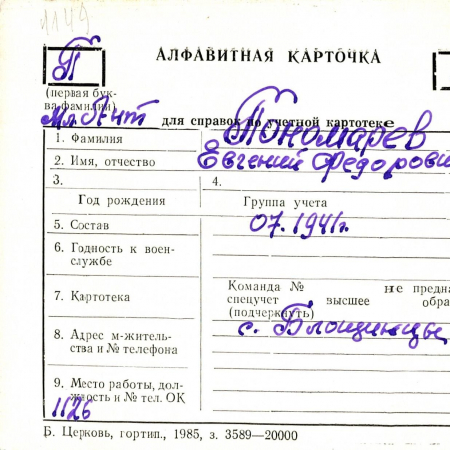 1149
П
АЛФАВИТНАЯ КАРТОЧКА
(первая бук-
ва фамилии)
Мл. Лент для справок по учетной картотеке
1. Фамилия Пономарев
2. Имя, отчество Евгений Федорови
3. 4.
Год рождения Группа учета
5. Состав 07.1941г.
6. Годность к воен-
службе
Команда № не предна
7. Картотека спецучет высшее обра
(подчеркнуть)
8. Адрес м-житель-
ства и № телефона с. Блощинцы
9. Место работы, дол-
жность и № тел. ОК
1126
Б. Церковь, гортип., 1985, з. 3589—20000